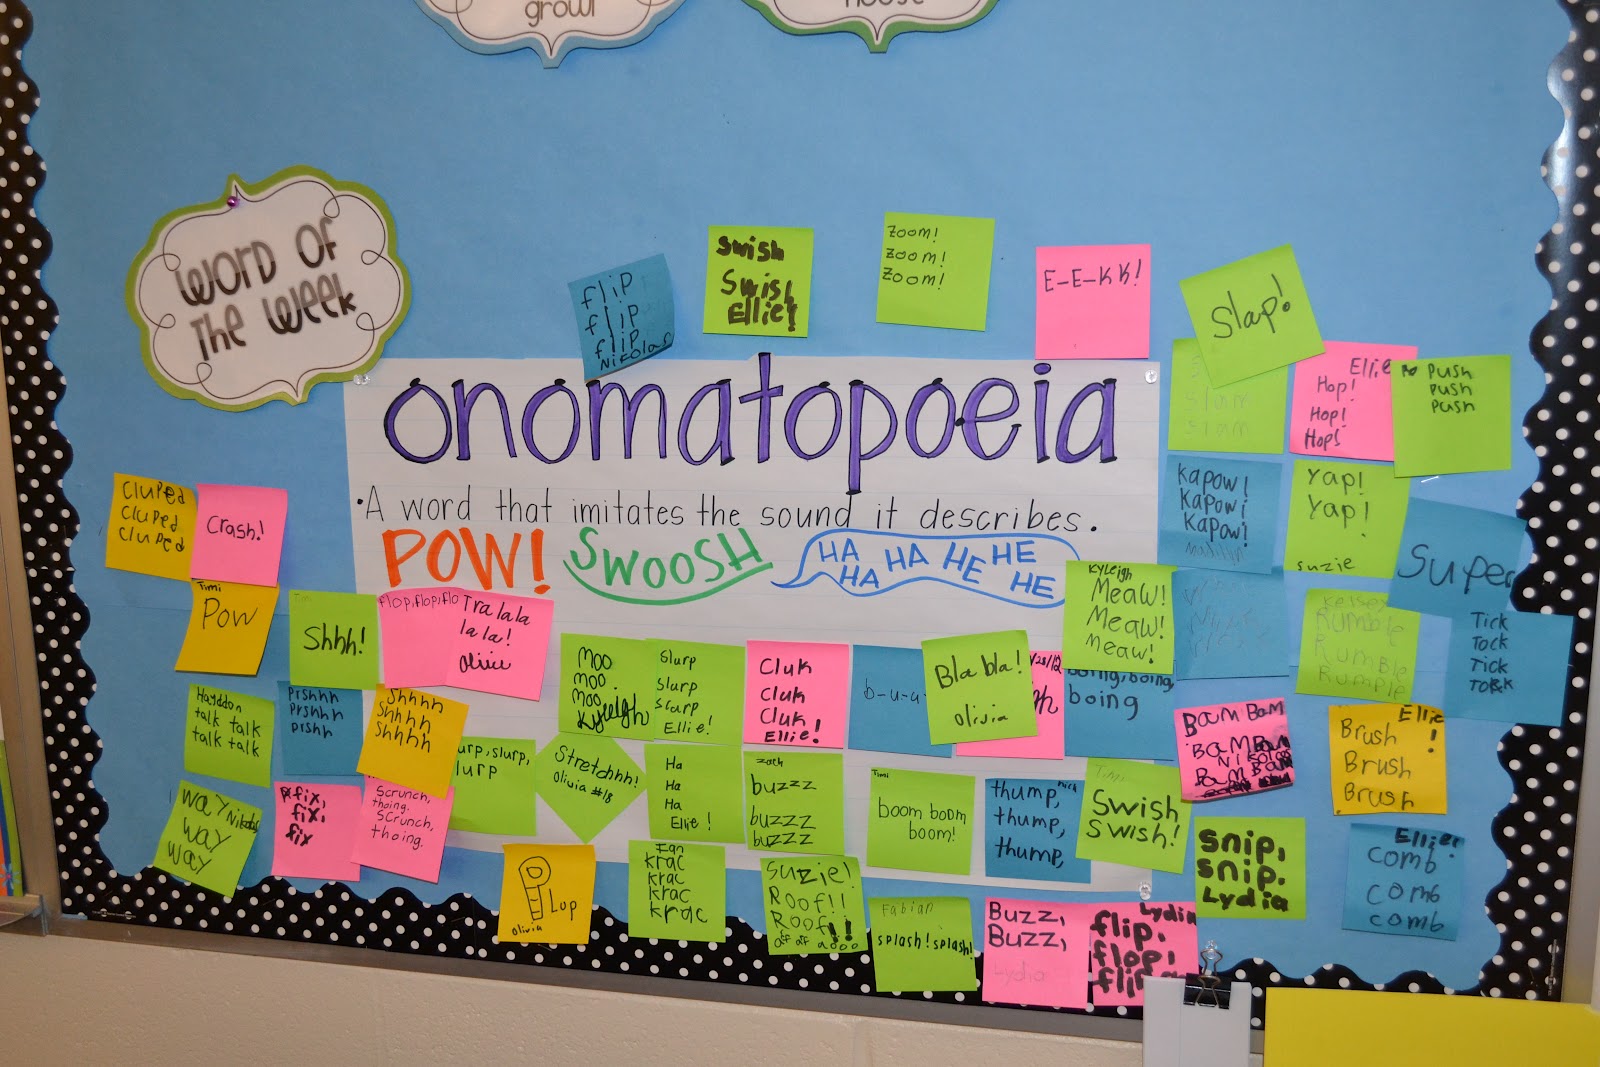 growl
house
WORD OF
THE WEEK
flip
flip
flip
Nikolas
Swish
Swish
Ellie!
Zoom!
Zoom!
Zoom!
E-E-KK!
Slap!
slam
slam
Ellie
Hop!
Hop!
Hop!
Push
Push
Push
onomatopoeia
• A word that imitates the sound it describes.
POW! SWOOSH HA HA HE HE
HA HE
Cluped
Cluped
Cluped
Crash!
Kapow!
Kapow!
Kapow!
Yap!
Yap!
suzie
Super
Timi
Pow
Shhh!
flop, flop, flo
Tra lala
la la!
Olivia
Kyleigh
Meaw!
Meaw!
Meaw!
Kelsey
Rumble
Rumble
Rumple
Tick
Tock
Tick
Tock
Hayddon
talk talk
talk talk
Prshhh
Prshhh
Prshh
Shhhh
Shhhh
Shhhh
Moo
moo.
moo.
Kyleigh
Slurp
Slurp
Slurp
Ellie!
Cluk
Cluk
Cluk
Ellie!
b-u-u
Bla bla!
olivia
boing, boing,
boing
Bam Bam
Bam Bam
Nikolas
Bam Bam
Ellie
Brush !
Brush
Brush
way Nikolas
way
way
fix,
fix,
fix
Scrunch,
thoing.
Scrunch,
thoing.
urp, slurp,
lurp
Stretchhh!
Olivia #18
Ha
Ha
Ha
Ellie!
zach
buzzz
buzzz
buzzz
Timi
boom boom
boom!
nick
thump,
thump,
thump,
Timi
Swish
Swish!
snip,
snip.
Lydia
Ellie!
comb
comb
comb
Lup
Olivia
Ian
Krac
Krac
Krac
Krac
Suzie!
Roof!!
Roof!!
Fabian
splash! splash!
Buzz,
Buzz,
Lydia
Lydia
flip,
flop,
flip